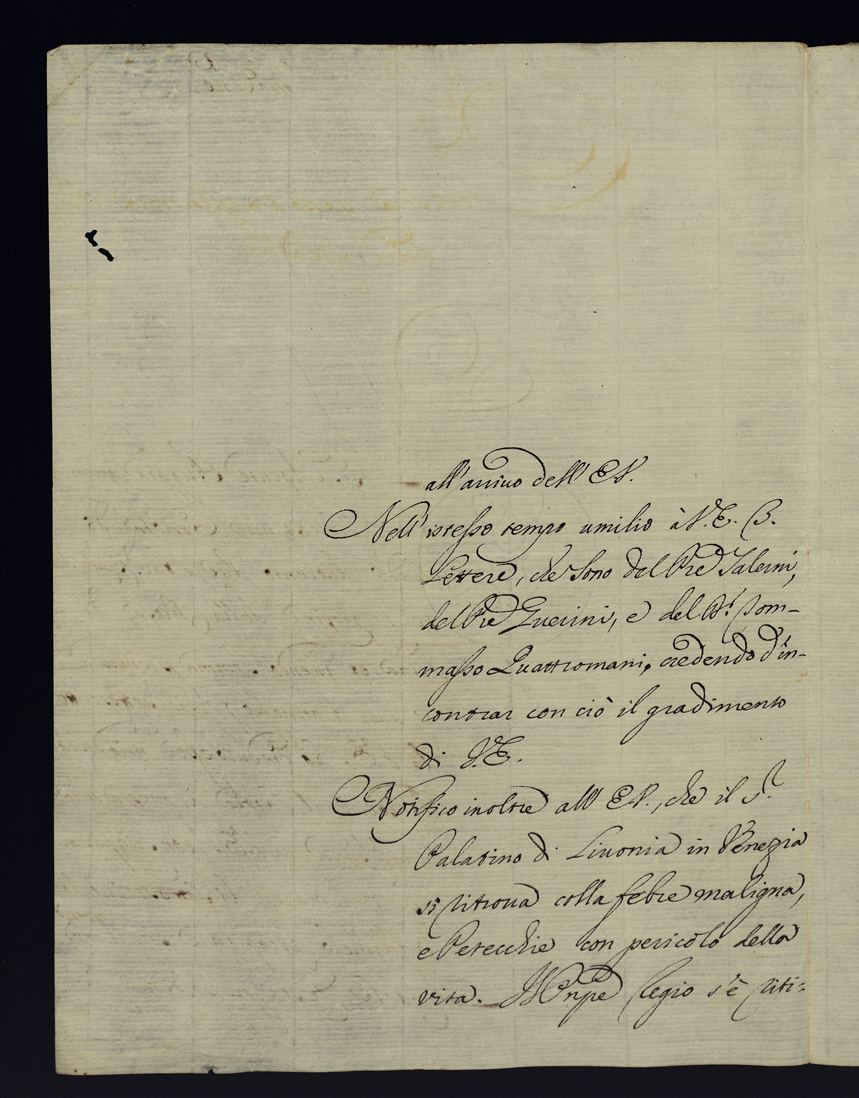 all'arriuo dell'E.V.
Nell'istesso tempo umilio à V.E. 3.
Lettere, che sono del Pre Salerni,
del Pre Guerini, e del Sr. Tom-
maso Quattromani, credendo d'in-
contrar con ciò il gradimento
di V.E.
Notifico inoltre all'E.V., che il Sr.
Palatino di Liuonia in Venezia
si ritroua colla febre maligna,
e Petecchie con pericolo della
vita. Il Prnpe Regio s'è riti=